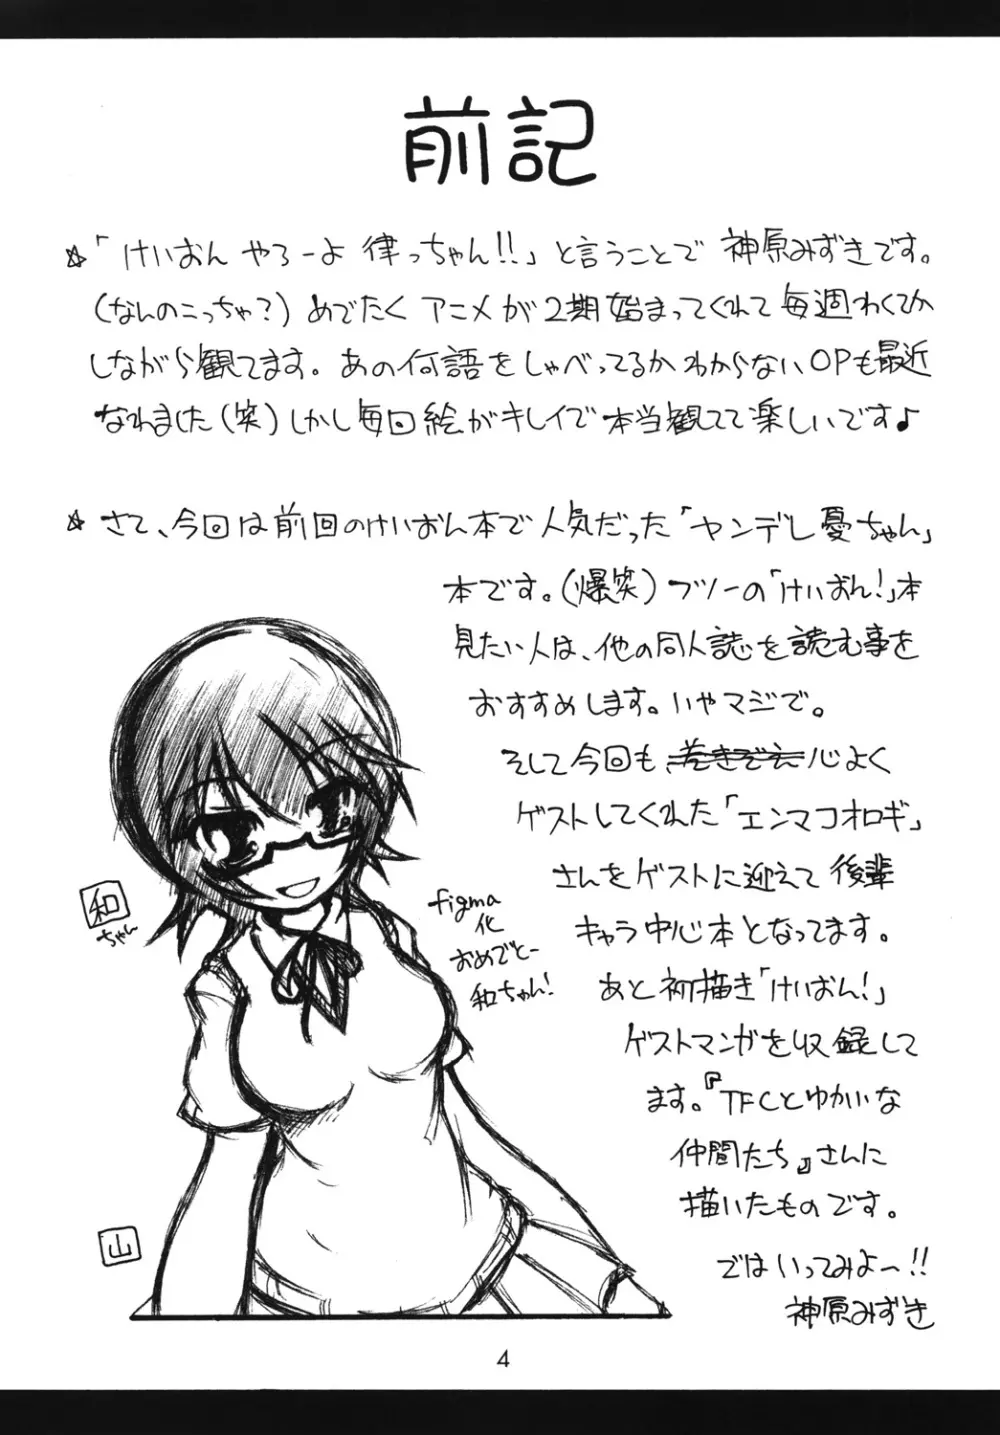 前記
☆「けいおん やろーよ 律っちゃん!!」と言うことで 神原みずきです。
(なんのこっちゃ?) めでたく アニメが2期始まってくれて毎週わくてか
しながら観てます。あの何語をしゃべってるかわからないOPも最近
なれました(笑)しかし毎回絵がキレイで本当観てて楽しいです♪
☆ さて、今回は前回のけいおん本で人気だった「ヤンデレ憂ちゃん」
本です。(爆笑) フツーの「けいおん!」本
見たい人は、他の同人誌を読む事を
おすすめします。いやマジで。
そして今回も 巻きぞえ 心よく
ゲストしてくれた「エンマコオロギ」
さんをゲストに迎えて後輩
キャラ中心本となってます。
あと初描き「けいおん!」
ゲストマンガを収録して
ます。『TFCとゆかいな
仲間たち』さんに
描いたものです。
ではいってみよ〜!!
神原みずき
和
ちゃん
figma
化
おめでとー
和ちゃん!
山
4